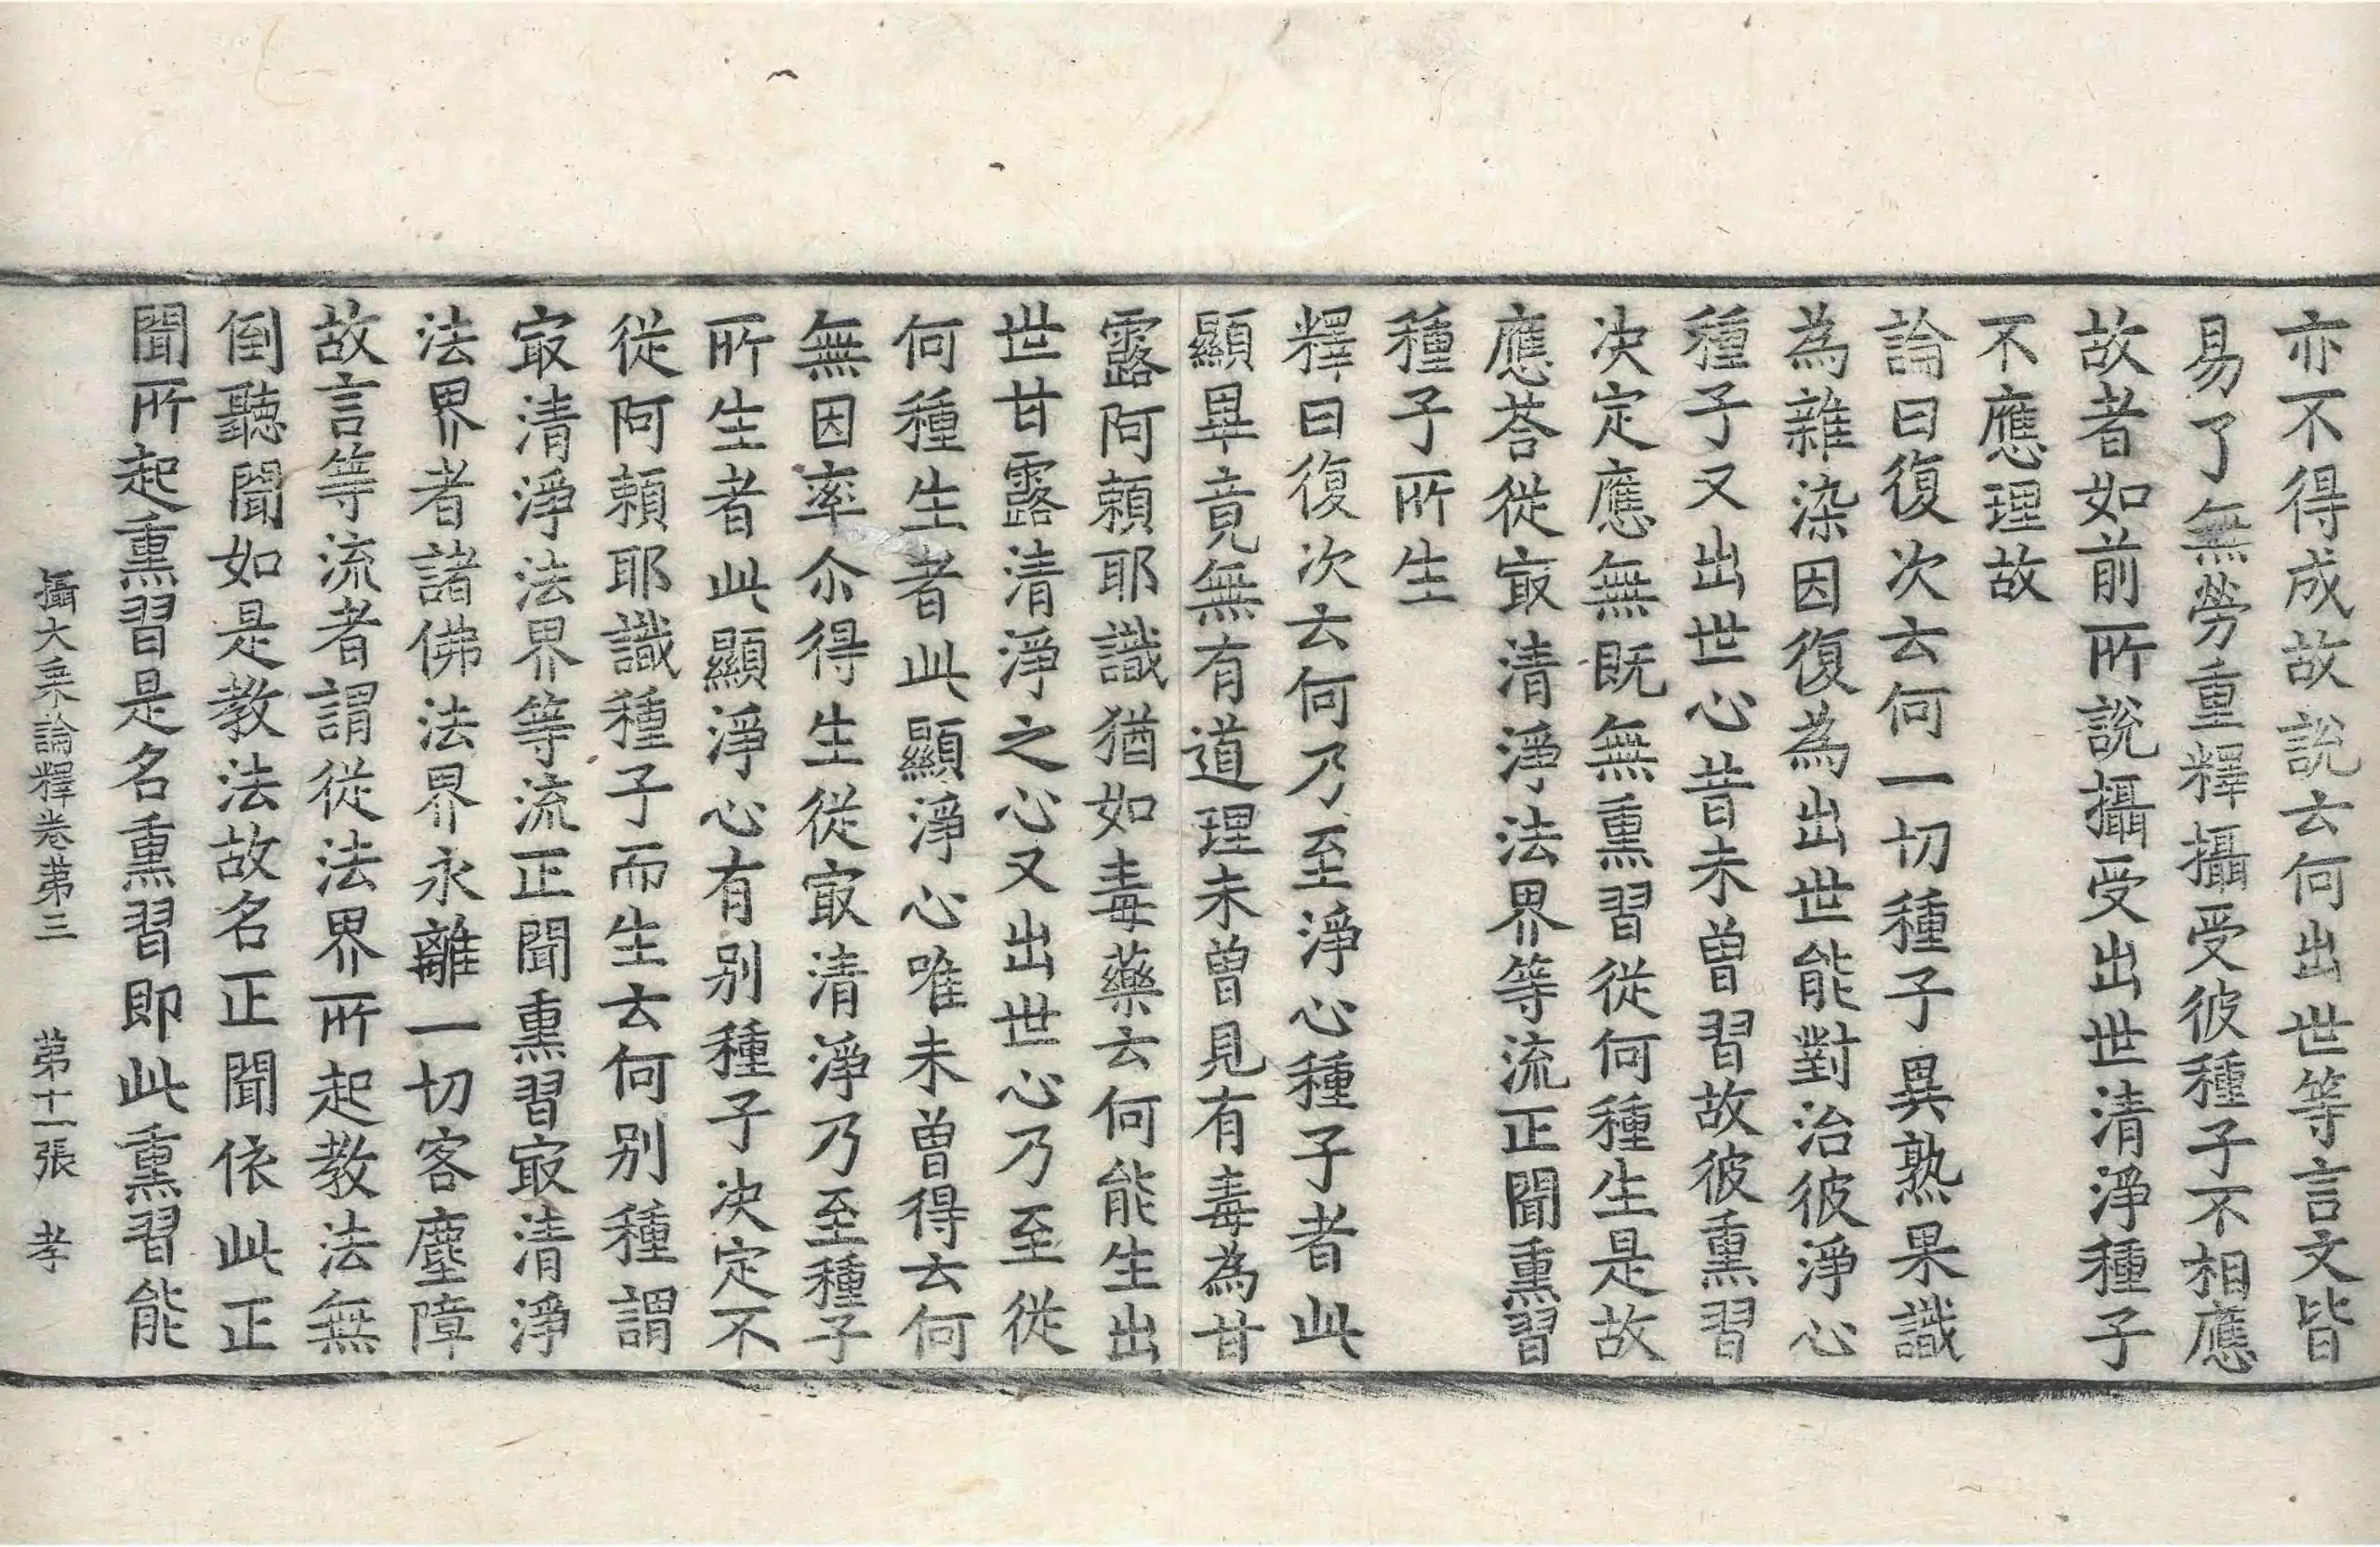 亦不得成故說去何出世等言文皆
易了無勞重釋攝受彼種子不相應
故者如前所說攝受出世清淨種子
不應理故
論曰復次去何一切種子異熟果識
為雜染因復為出世能對治彼淨心
種子又出世心昔未曾習故彼熏習
决定應無既無熏習從何種生是故
應荅從冣清淨法界等流正聞熏習
種子所生
釋曰復次去何乃至淨心種子者此
顯畢竟無有道理未曾見有毒為甘
露阿賴耶識猶如毒藥去何能生出
世甘露清淨之心又出世心乃至從
何種生者此顯淨心唯未曾得去何
無因率尒得生從冣清淨乃至種子
所生者此顯淨心有別種子决定不
從阿賴耶識種子而生去何別種謂
冣清淨法界等流正聞熏習冣清淨
法界者諸佛法界永離一切客塵障
故言等流者謂從法界所起教法無
倒聽聞如是教法故名正聞依此正
聞所起熏習是名熏習即此熏習能
攝大乘論釋卷苐三 苐十一張 孝